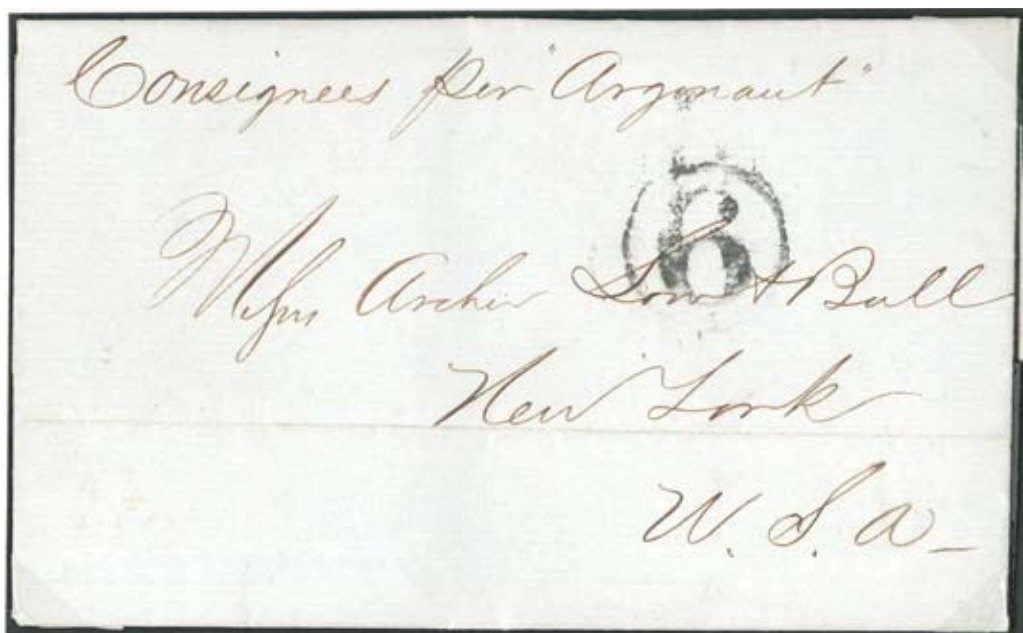 Consignees per "Argonaut"
6
Messrs Archer Low & Bull
New York
U. S. A -